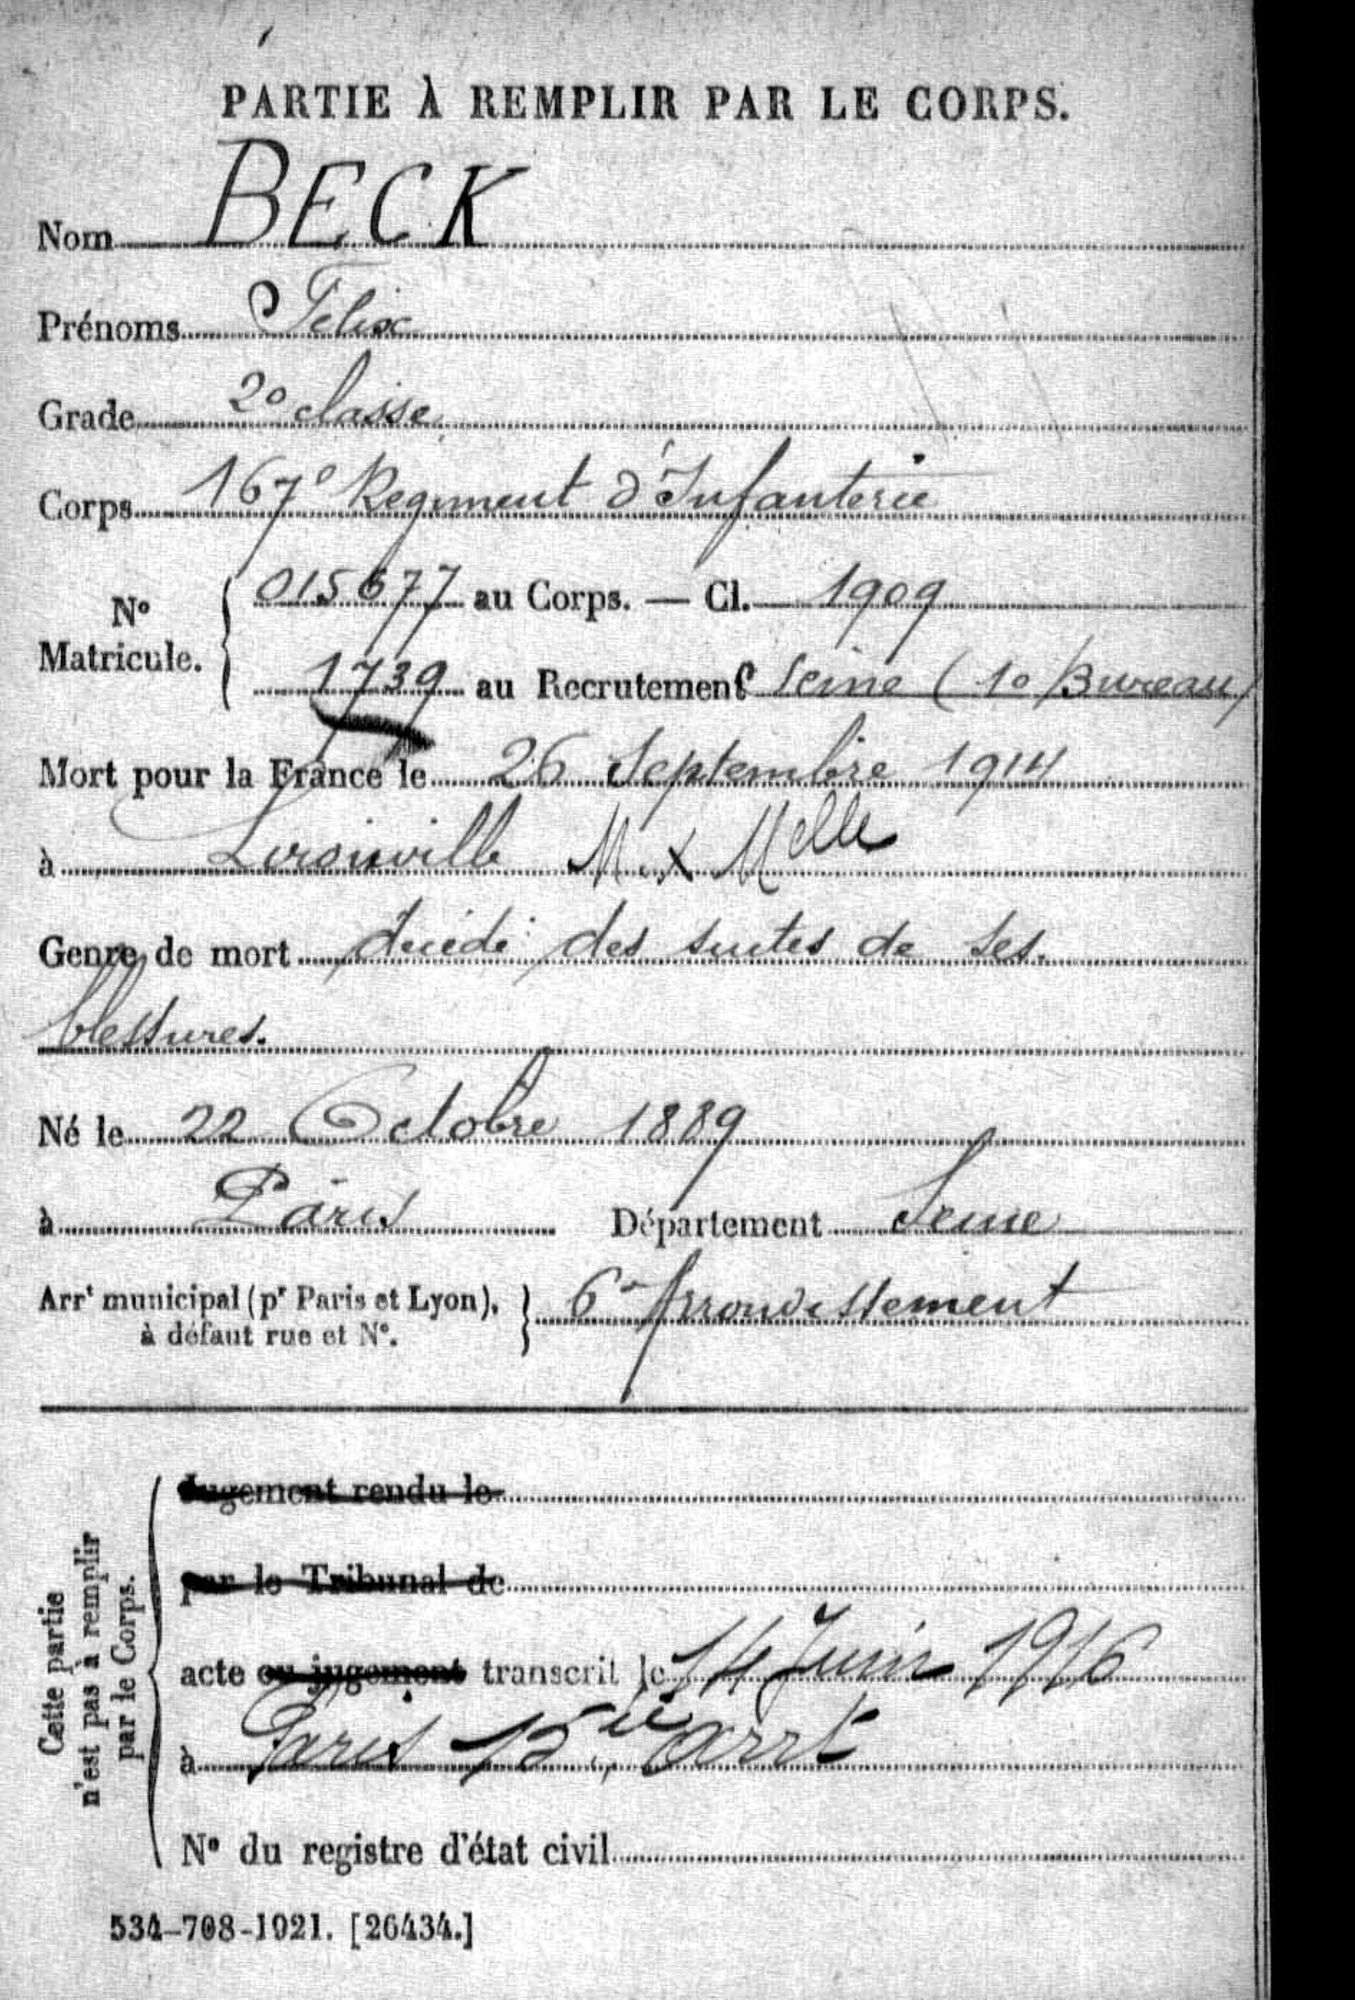 PARTIE À REMPLIR PAR LE CORPS.
Nom BECK
Prénoms Félix
Grade 2e classe
Corps 167e Regiment d'Infanterie
No Matricule. { 015677 au Corps. — Cl. 1909
1739 au Recrutement Seine (1o Bureau)
Mort pour la France le 26 Septembre 1914
à Lironville M. & Melle
Genre de mort décédé des suites de ses
blessures.
Né le 22 Octobre 1889
à Paris Département Seine
Arrt municipal (pr Paris et Lyon), à défaut rue et No. } 6e Arrondissement
Cette partie n'est pas à remplir par le Corps.
Jugement rendu le
par le Tribunal de
acte ou jugement transcrit le 14 Juin 1916
à Paris arrt
No du registre d'état civil
534-708-1921. [26434.]